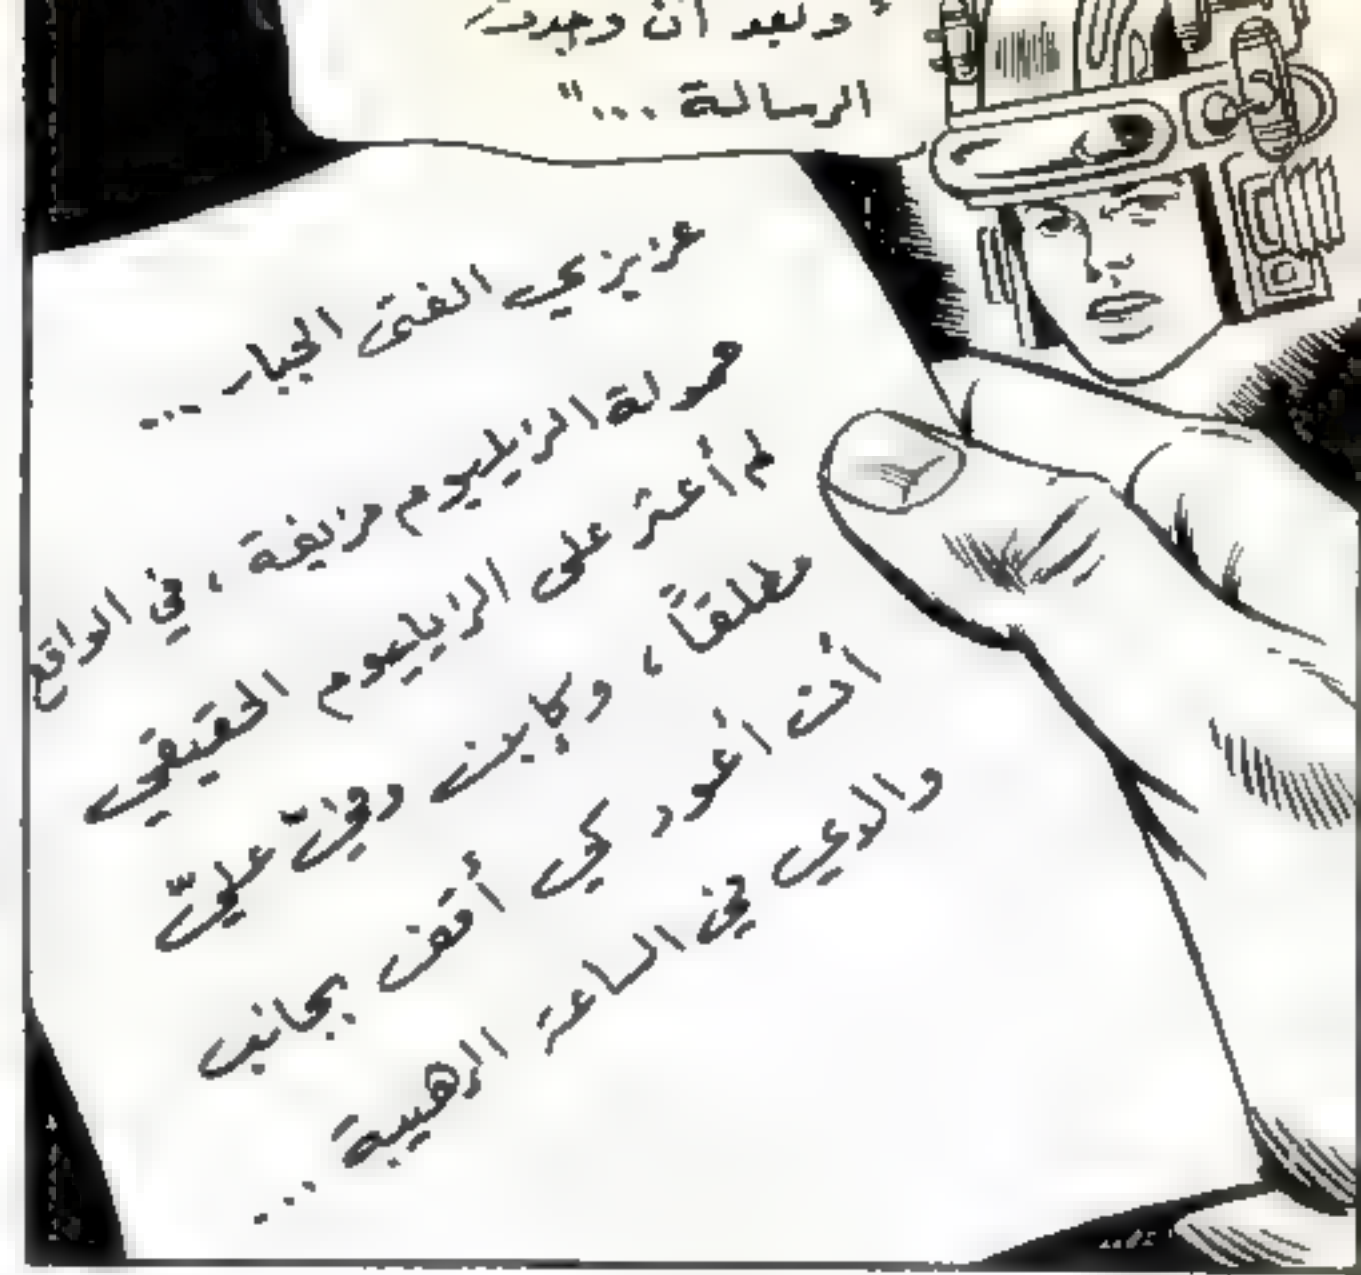 ولعد أن وجدت
الرسالة ..."
عزيزي الفتى الجبار ...
حمولة الزايليوم مزيفة ، في الواقع
لم أعثر على الزايليوم الحقيقي
مطلقاً ، وكإبن وفيّ عليّ
أن أعود كي أقف بجانب
والدي في الساعة الرهيبة ...